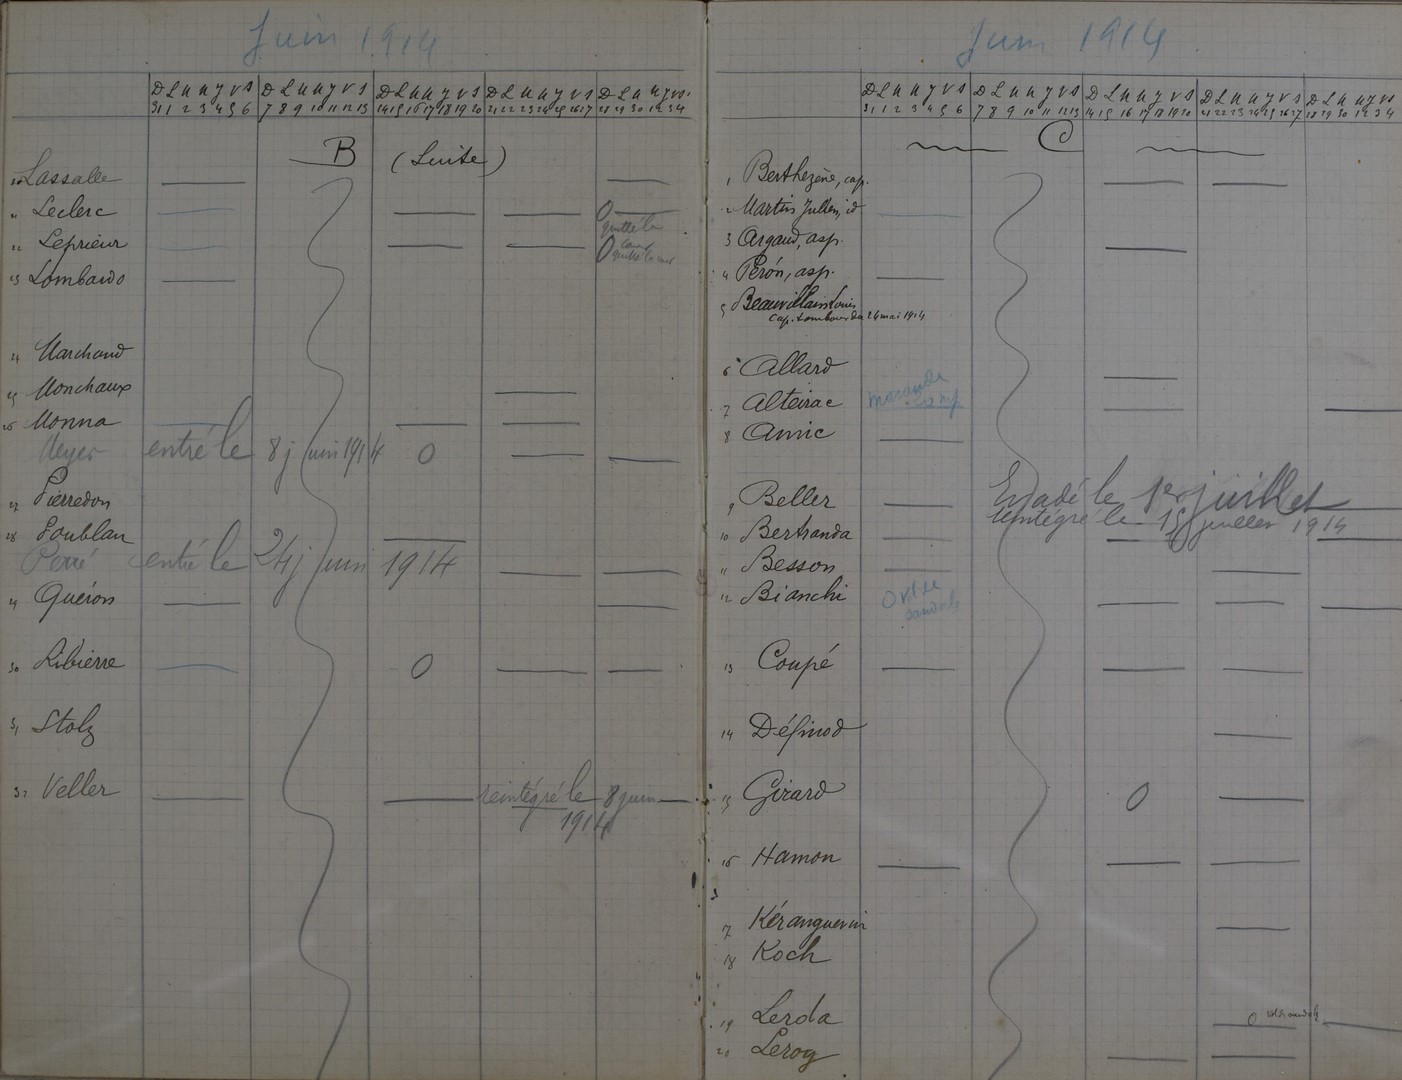 Juin 1914
D L M M J V S D L M M J V S D L M M J V S D L M M J V S D L M M J V S
31 1 2 3 4 5 6 7 8 9 10 11 12 13 14 15 16 17 18 19 20 21 22 23 24 25 26 27 28 29 30 1 2 3 4
B (Suite)
20 Lassalle
21 Leclerc 0
quitté la
22 Leprieur 0
quitté la
23 Lombardo
24 Marchand
25 Monchaux
26 Monna
Meyer entré le 8 juin 1914 0
27 Pierredon
28 Poublan
Perré entré le 24 juin 1914
29 Quéron
30 Ribierre 0
31 Stolz
32 Veller réintégré le 8 juin
1914
Juin 1914
D L M M J V S D L M M J V S D L M M J V S D L M M J V S D L M M J V S
31 1 2 3 4 5 6 7 8 9 10 11 12 13 14 15 16 17 18 19 20 21 22 23 24 25 26 27 28 29 30 1 2 3 4
C
1 Berthezène, cap.
2 Martin Julien, id
3 Argaud, asp.
4 Perón, asp.
5 Beauvillain Louis
cap. tambour du 24 mai 1914
6 Allard
7 Alteirac
8 Amic
9 Beller Evadé le 1er juillet
réintégré le 15 juillet 1914
10 Bertranda
11 Besson
12 Bianchi 0
13 Coupé
14 Définod
15 Girard 0
16 Hamon
17 Kéranguevin
18 Koch
19 Lerda 0
20 Leroy